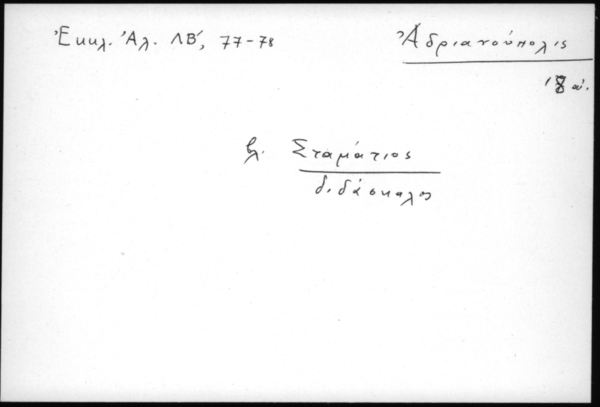 Ἐκκλ. Ἀλ. ΛΒ΄, 77-78
Ἀδριανούπολις
18 αἰ.
βλ. Σταμάτιος
διδάσκαλος